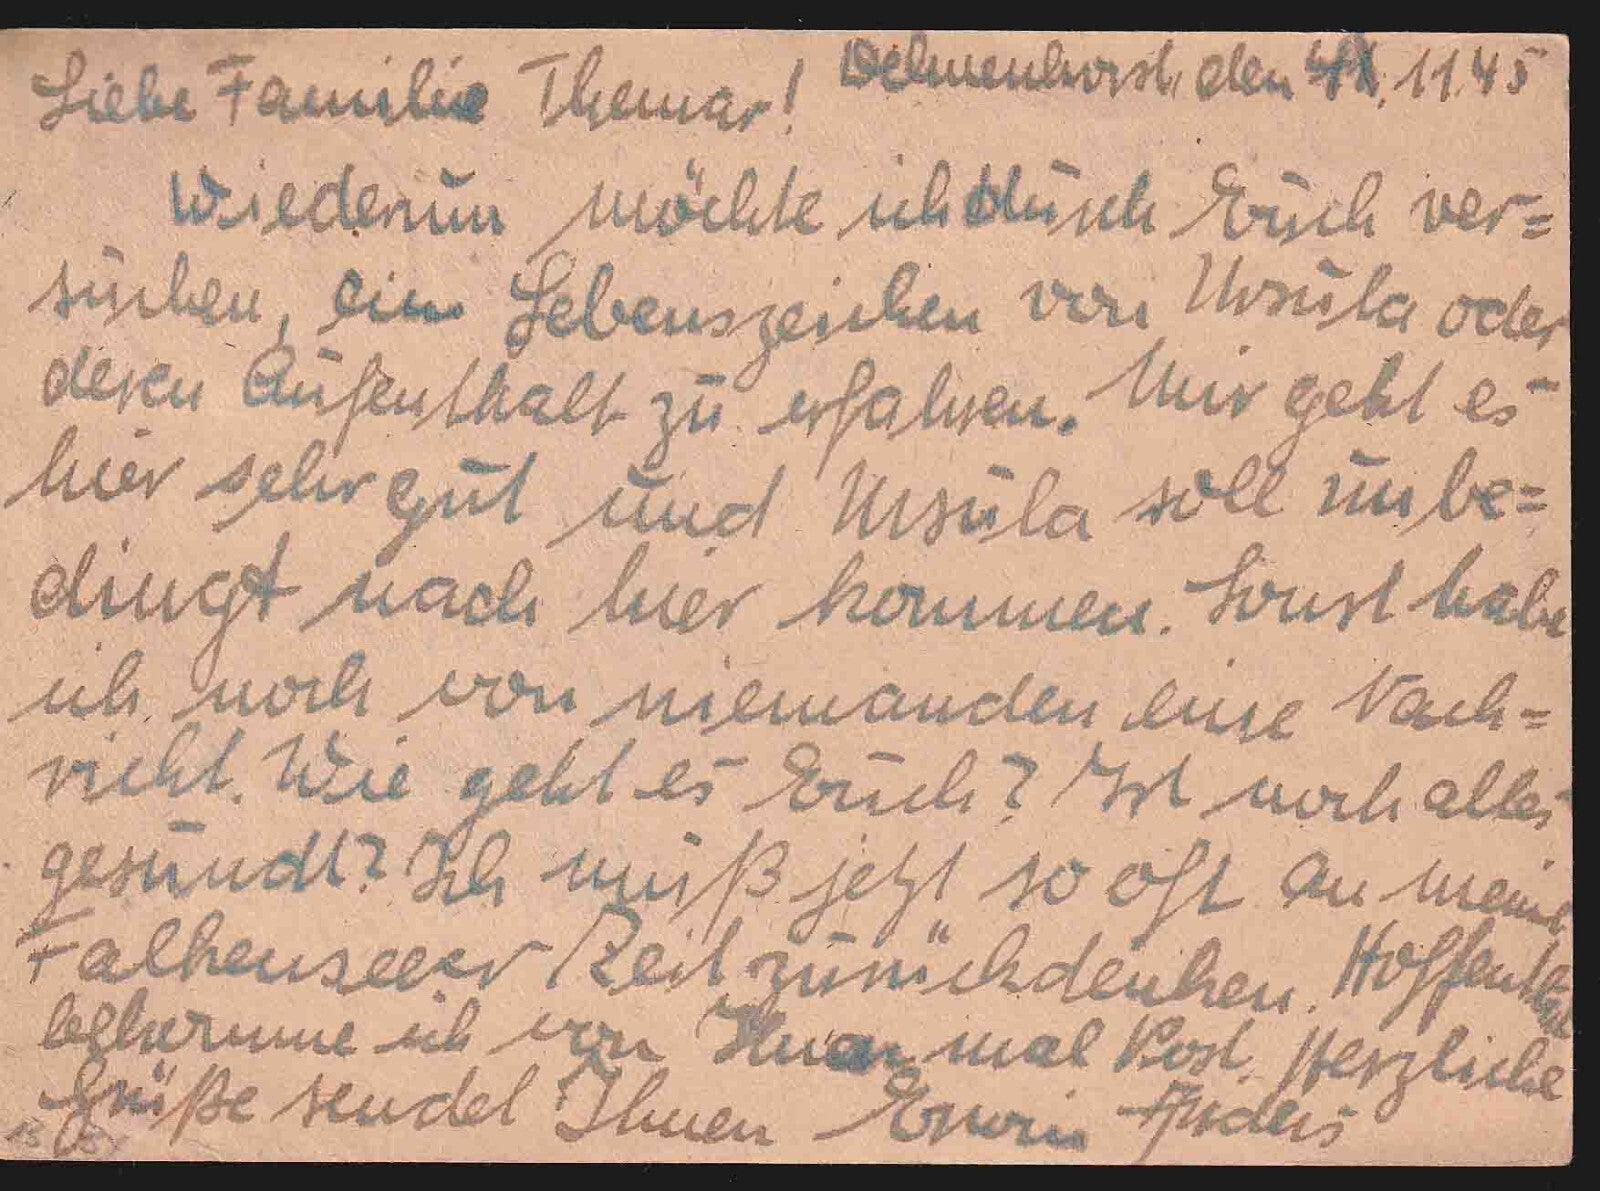 Liebe Familie Themar! Delmenhorst, den 11.45
Wiederum möchte ich durch Euch ver=
suchen, ein Lebenszeichen von Ursula oder
deren Aufenthalt zu erfahren. Mir geht es
hier sehr gut und Ursula soll unbe=
dingt nach hier kommen. Sonst habe
ich noch von niemanden eine Nach=
richt. Wie geht es Euch? Ist noch alles
gesundt? Ich muß jetzt so oft an meine
Falkenseeer Zeit zurückdenken. Hoffentlich
bekomme ich von Ihnen mal Post. Herzliche
Grüße sendet Ihnen Erwin